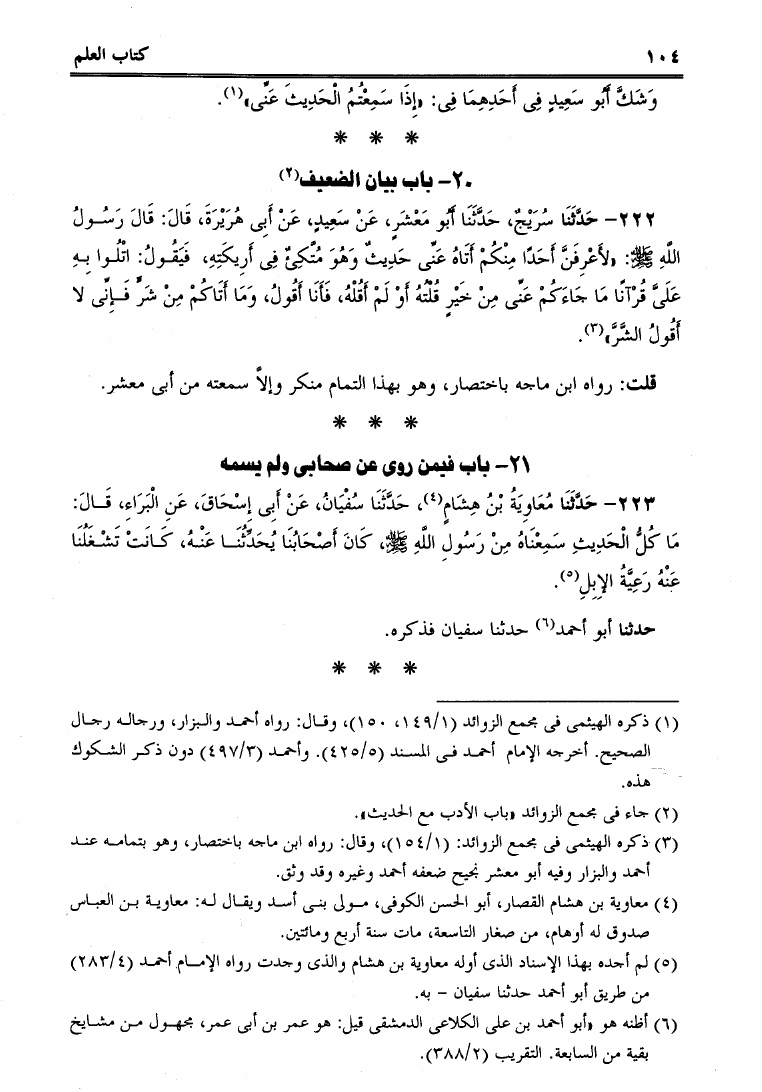 ١٠٤ كتاب العلم
وَشَكَّ أَبُو سَعِيدٍ فِى أَحَدِهِمَا فِى: «إِذَا سَمِعْتُمُ الْحَدِيثَ عَنِّى»(١).
* * *
٢٠- باب بيان الضعيف(٢)
٢٢٢- حَدَّثَنَا سُرَيْجٌ، حَدَّثَنَا أَبُو مَعْشَرٍ، عَنْ سَعِيدٍ، عَنْ أَبِى هُرَيْرَةَ، قَالَ: قَالَ رَسُولُ
اللَّهِ ﷺ: «لأَعْرِفَنَّ أَحَدًا مِنْكُمْ أَتَاهُ عَنِّى حَدِيثٌ وَهُوَ مُتَّكِئٌ فِى أَرِيكَتِهِ، فَيَقُولُ: اتْلُوا بِهِ
عَلَىَّ قُرْآنًا مَا جَاءَكُمْ عَنِّى مِنْ خَيْرٍ قُلْتُهُ أَوْ لَمْ أَقُلْهُ، فَأَنَا أَقُولُ، وَمَا أَتَاكُمْ مِنْ شَرٍّ فَإِنِّى لا
أَقُولُ الشَّرَّ»(٣).
قلت: رواه ابن ماجه باختصار، وهو بهذا التمام منكر وإلاً سمعته من أبى معشر.
* * *
٢١- باب فيمن روى عن صحابى ولم يسمه
٢٢٣- حَدَّثَنَا مُعَاوِيَةُ بْنُ هِشَامٍ(٤)، حَدَّثَنَا سُفْيَانُ، عَنْ أَبِى إِسْحَاقَ، عَنِ الْبَرَاءِ، قَالَ:
مَا كُلُّ الْحَدِيثِ سَمِعْنَاهُ مِنْ رَسُولِ اللَّهِ ﷺ، كَانَ أَصْحَابُنَا يُحَدِّثُنَا عَنْهُ، كَانَتْ تَشْغَلُنَا
عَنْهُ رَعِيَّةُ الإِبِلِ(٥).
حدثنا أبو أحمد(٦) حدثنا سفيان فذكره.
* * *
(١) ذكره الهيثمى فى مجمع الزوائد (١٤٩/١، ١٥٠)، وقال: رواه أحمد والبزار، ورجاله رجال
الصحيح. أخرجه الإمام أحمد فى المسند (٤٢٥/٥). وأحمد (٤٩٧/٣) دون ذكر الشكوك
هذه.
(٢) جاء فى مجمع الزوائد «باب الأدب مع الحديث».
(٣) ذكره الهيثمى فى مجمع الزوائد: (١٥٤/١)، وقال: رواه ابن ماجه باختصار، وهو بتمامه عند
أحمد والبزار وفيه أبو معشر نجيح ضعفه أحمد وغيره وقد وثق.
(٤) معاوية بن هشام القصار، أبو الحسن الكوفى، مولى بنى أسد ويقال له: معاوية بن العباس
صدوق له أوهام، من صغار التاسعة، مات سنة أربع ومائتين.
(٥) لم أجده بهذا الإسناد الذى أوله معاوية بن هشام والذى وجدت رواه الإمام أحمد (٢٨٣/٤)
من طريق أبو أحمد حدثنا سفيان - به.
(٦) أظنه هو «أبو أحمد بن على الكلاعى الدمشقى قيل: هو عمر بن أبى عمر، مجهول من مشايخ
بقية من السابعة. التقريب (٣٨٨/٢).